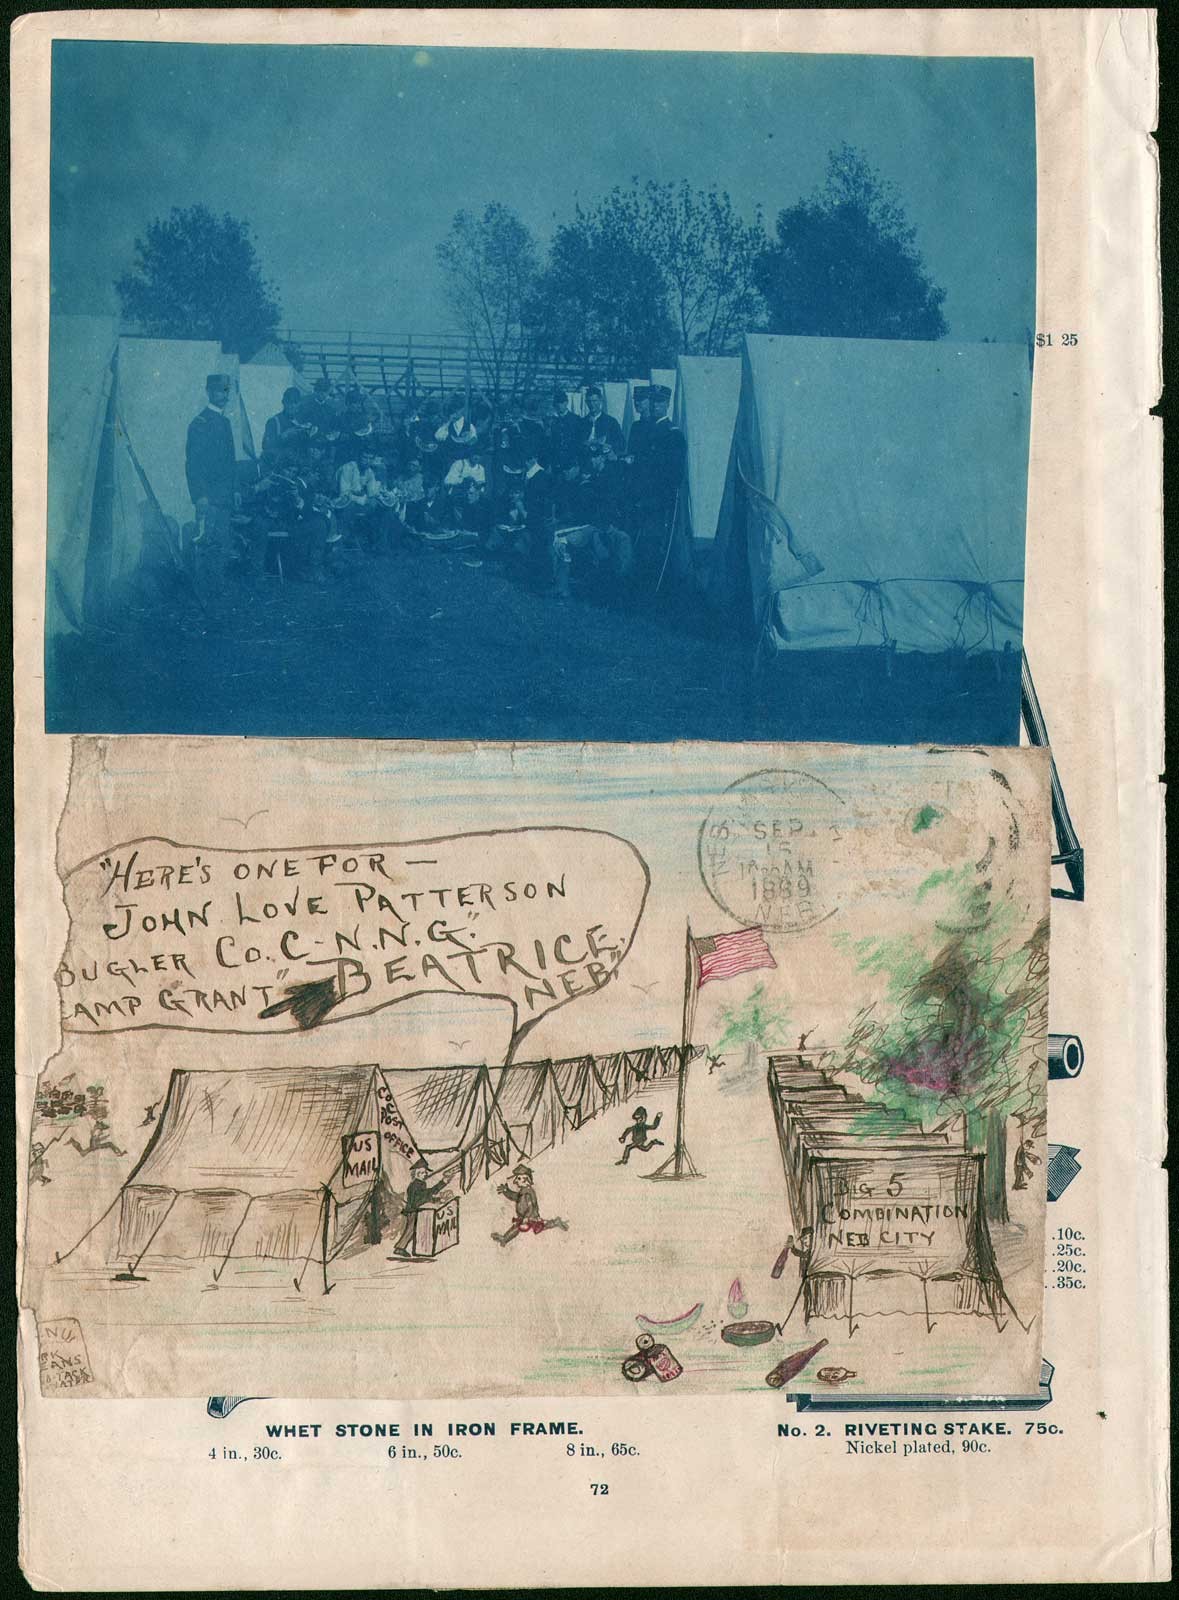 $1 25
"HERE'S ONE FOR —
JOHN LOVE PATTERSON
BUGLER CO. C - N.N.G."
CAMP GRANT" BEATRICE
NEB"
NEB
SEP.
15
AM
1889
NEB
CO C
POST
OFFICE
US
MAIL
US
MAIL
BIG 5
COMBINATION
NEB CITY
.10c.
.25c.
.20c.
.35c.
WHET STONE IN IRON FRAME.
4 in., 30c. 6 in., 50c. 8 in., 65c.
No. 2. RIVETING STAKE. 75c.
Nickel plated, 90c.
72